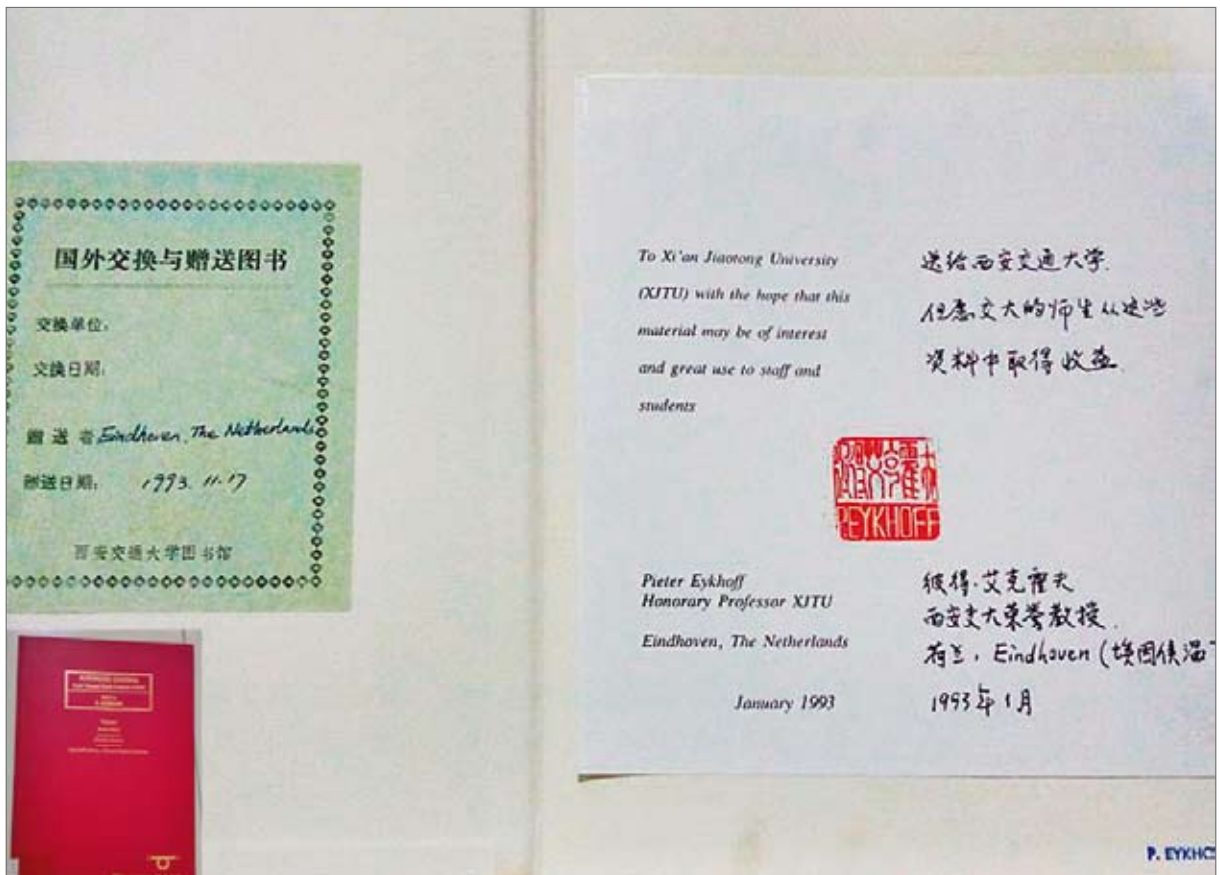 国外交换与赠送图书
交换单位:
交换日期:
赠送者 Eindhoven, The Netherlands
赠送日期: 1993.11.17
西安交通大学图书馆
To Xi'an Jiaotong University
(XJTU) with the hope that this
material may be of interest
and great use to staff and
students
送给西安交通大学.
但愿交大的师生从这些
资料中取得收益.
P.EYKHOFF
Pieter Eykhoff
Honorary Professor XJTU
Eindhoven, The Netherlands
January 1993
彼得·艾克霍夫
西安交大荣誉教授.
荷兰, Eindhoven (埃因侯温
1993年1月
P. EYKHO